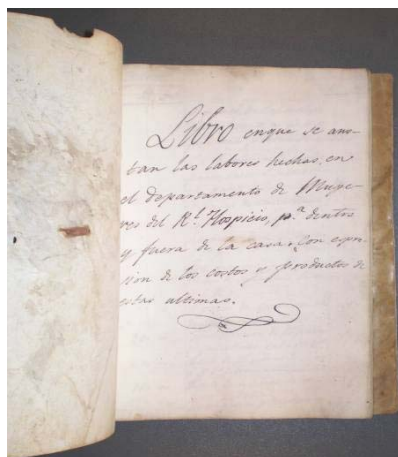 Libro enque se ano-
tan las labores hechas, en
el departamento de Muge-
res del Rl. Hospicio, pa. dentro
y fuera de la casa: Con expre-
sion de los costos y productos de
estas ultimas.